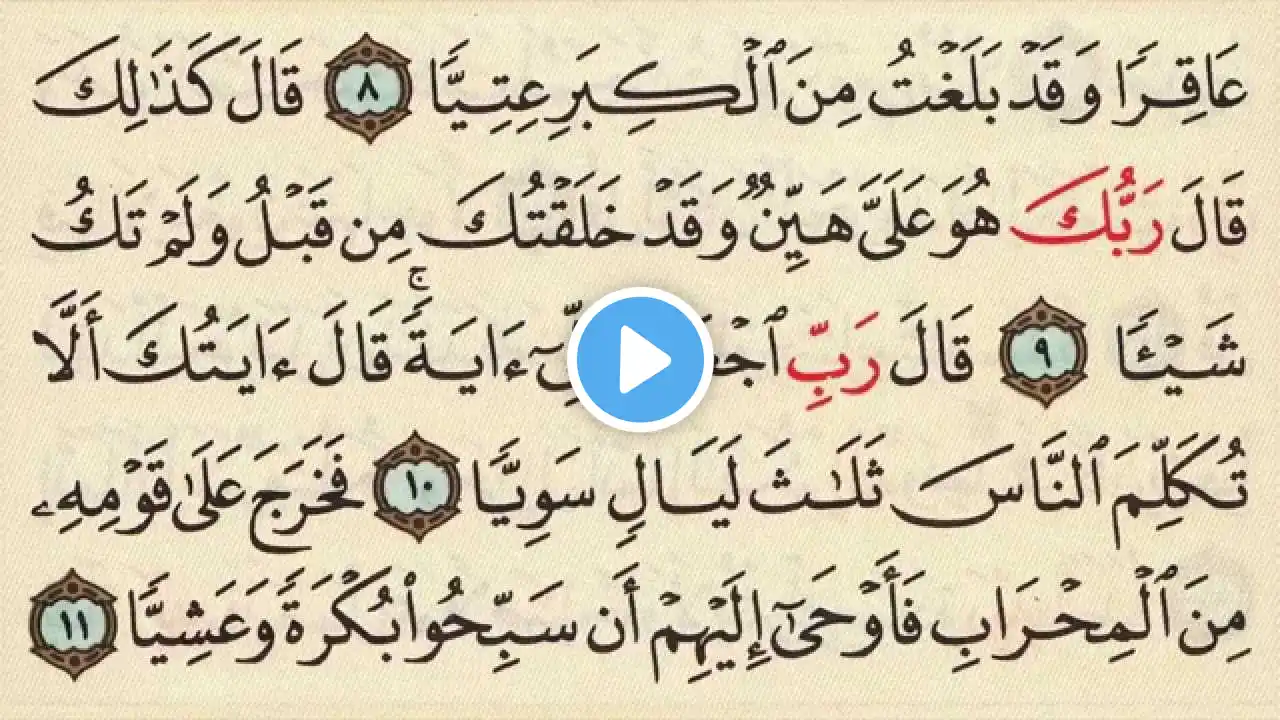 عَاقِرًا وَقَدْ بَلَغْتُ مِنَ ٱلْكِبَرِ عِتِيًّا ٨ قَالَ كَذَٰلِكَ
قَالَ رَبُّكَ هُوَ عَلَىَّ هَيِّنٌ وَقَدْ خَلَقْتُكَ مِن قَبْلُ وَلَمْ تَكُ
شَيْـًٔا ٩ قَالَ رَبِّ ءَايَةً ۚ قَالَ ءَايَتُكَ أَلَّا
تُكَلِّمَ ٱلنَّاسَ ثَلَٰثَ لَيَالٍ سَوِيًّا ١٠ فَخَرَجَ عَلَىٰ قَوْمِهِۦ
مِنَ ٱلْمِحْرَابِ فَأَوْحَىٰٓ إِلَيْهِمْ أَن سَبِّحُوا۟ بُكْرَةً وَعَشِيًّا ١١